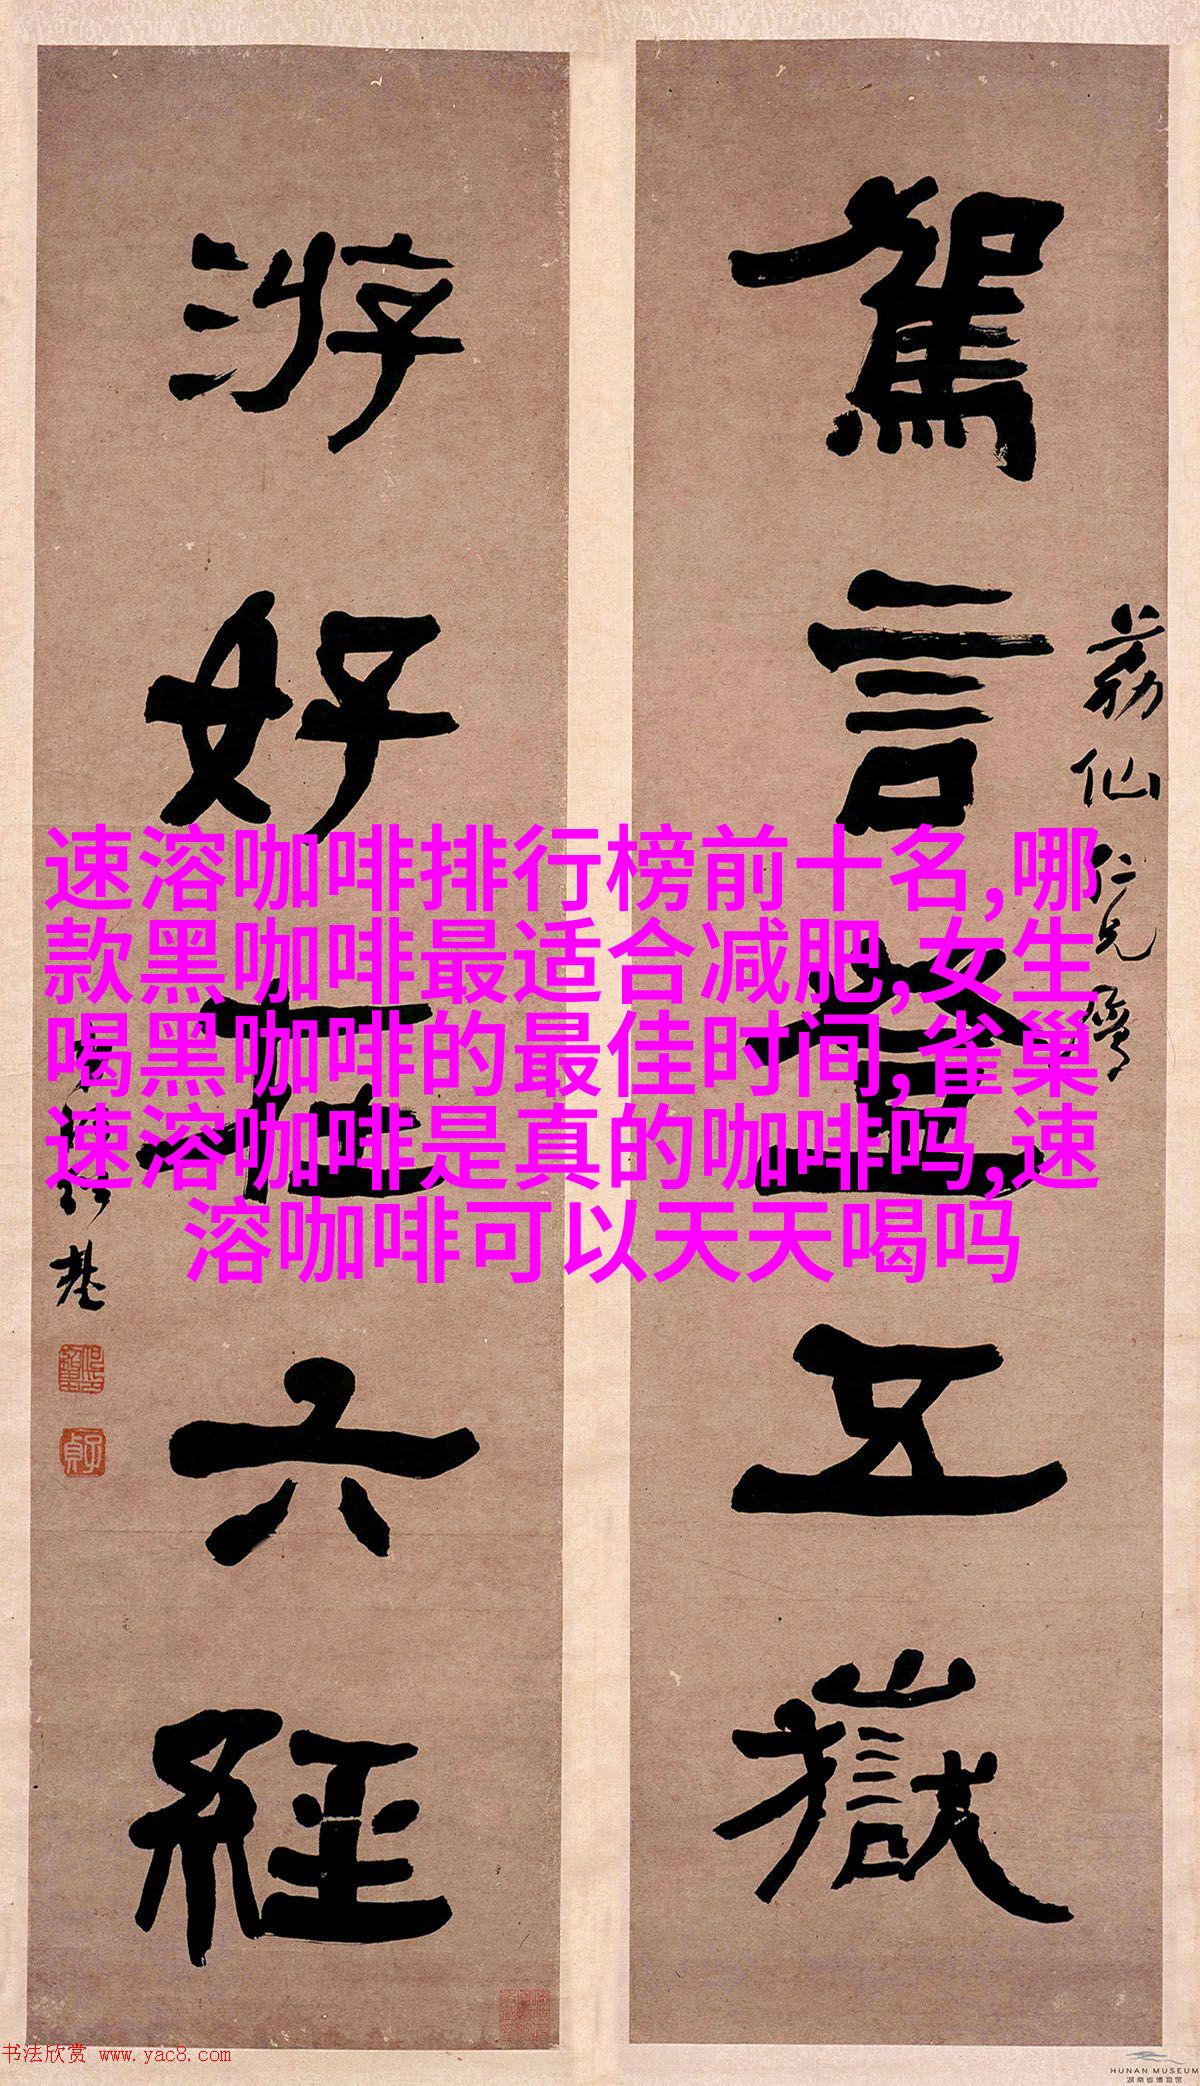 荔仙仁兄屬
駕言登五嶽
游好在六經
基
子貞
速溶咖啡排行榜前十名,哪
款黑咖啡最适合减肥,女生
喝黑咖啡的最佳时间,雀巢
速溶咖啡是真的咖啡吗,速
溶咖啡可以天天喝吗
书法欣赏 www.yac8.com
HUNAN MUSEUM
湖南省博物馆